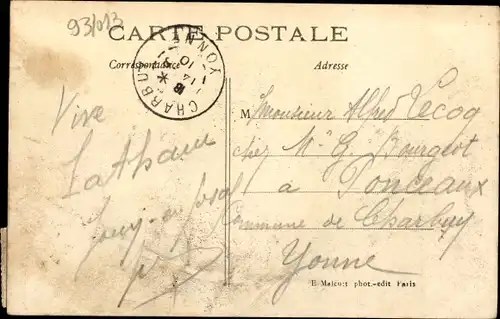 93/013
CARTE POSTALE
Correspondance
Adresse
CHARBUY
YONNE
14
10
Vive
Latham
Jouy-en-Josas
Monsieur Alfred Lecoq
chez Mr G. Bourgeot
à Ponceaux
Commune de Charbuy
Yonne
E Malcuit phot.-edit Paris